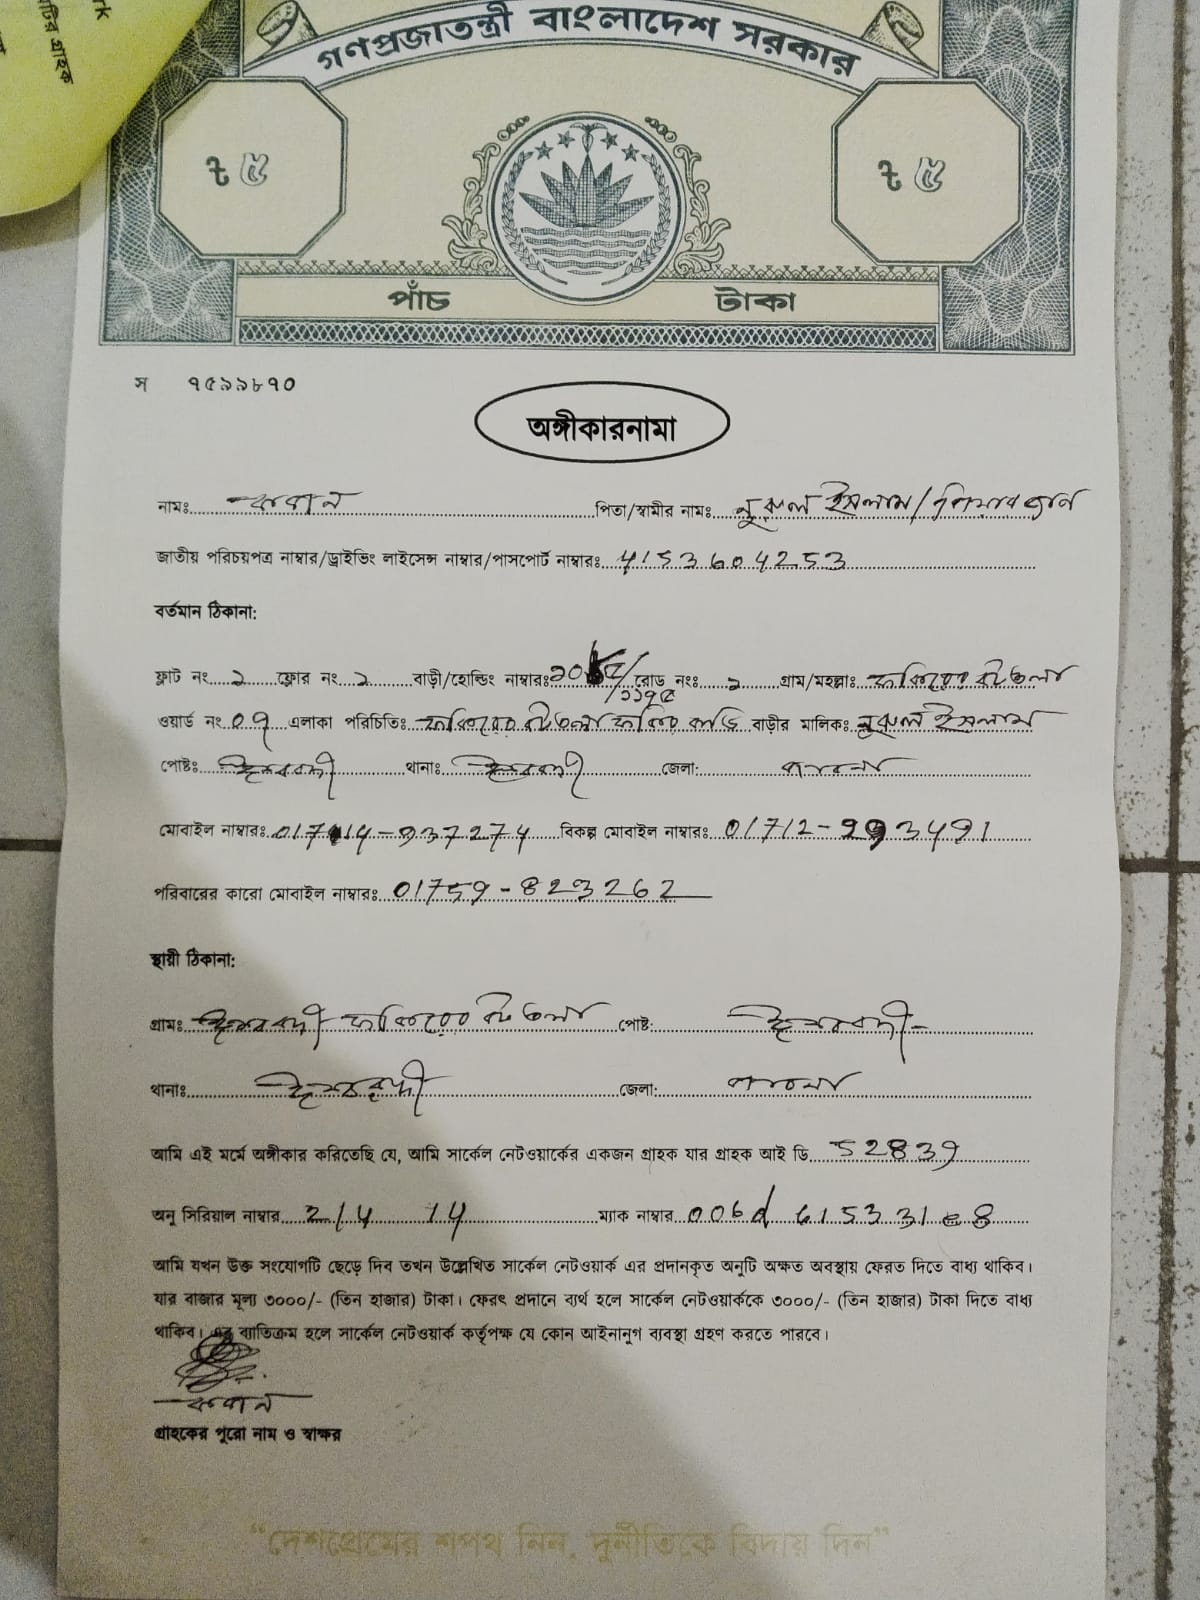 গণপ্রজাতন্ত্রী বাংলাদেশ সরকার
৳ ৫ ৳ ৫
পাঁচ টাকা
স ৭৫৯৯৮৭০
অঙ্গীকারনামা
নামঃ পিতা/স্বামীর নামঃ নুরুল ইসলাম/
জাতীয় পরিচয়পত্র নাম্বার/ড্রাইভিং লাইসেন্স নাম্বার/পাসপোর্ট নাম্বারঃ 4153604253
বর্তমান ঠিকানা:
ফ্লাট নং ১ ফ্লোর নং ১ বাড়ী/হোল্ডিং নাম্বারঃ রোড নংঃ ১ গ্রাম/মহল্লাঃ ফকিরের বটতলা
ওয়ার্ড নং 07 এলাকা পরিচিতিঃ ফকিরের বটতলা বাড়ীর মালিকঃ নুরুল ইসলাম
পোষ্টঃ ঈশ্বরদী থানাঃ ঈশ্বরদী জেলা: পাবনা
মোবাইল নাম্বারঃ বিকল্প মোবাইল নাম্বারঃ
পরিবারের কারো মোবাইল নাম্বারঃ 01759-823262
স্থায়ী ঠিকানা:
গ্রামঃ ঈশ্বরদী ফকিরের বটতলা পোষ্ট: ঈশ্বরদী
থানাঃ ঈশ্বরদী জেলা: পাবনা
আমি এই মর্মে অঙ্গীকার করিতেছি যে, আমি সার্কেল নেটওয়ার্কের একজন গ্রাহক যার গ্রাহক আই ডি 52839
অনু সিরিয়াল নাম্বার 214 14 ম্যাক নাম্বার 006d 615331e8
আমি যখন উক্ত সংযোগটি ছেড়ে দিব তখন উল্লেখিত সার্কেল নেটওয়ার্ক এর প্রদানকৃত অনুটি অক্ষত অবস্থায় ফেরত দিতে বাধ্য থাকিব।
যার বাজার মূল্য ৩০০০/- (তিন হাজার) টাকা। ফেরৎ প্রদানে ব্যর্থ হলে সার্কেল নেটওয়ার্ককে ৩০০০/- (তিন হাজার) টাকা দিতে বাধ্য
থাকিব। এর ব্যতিক্রম হলে সার্কেল নেটওয়ার্ক কর্তৃপক্ষ যে কোন আইনানুগ ব্যবস্থা গ্রহণ করতে পারবে।
গ্রাহকের পুরো নাম ও স্বাক্ষর
"দেশপ্রেমের শপথ নিন, দুর্নীতিকে বিদায় দিন"